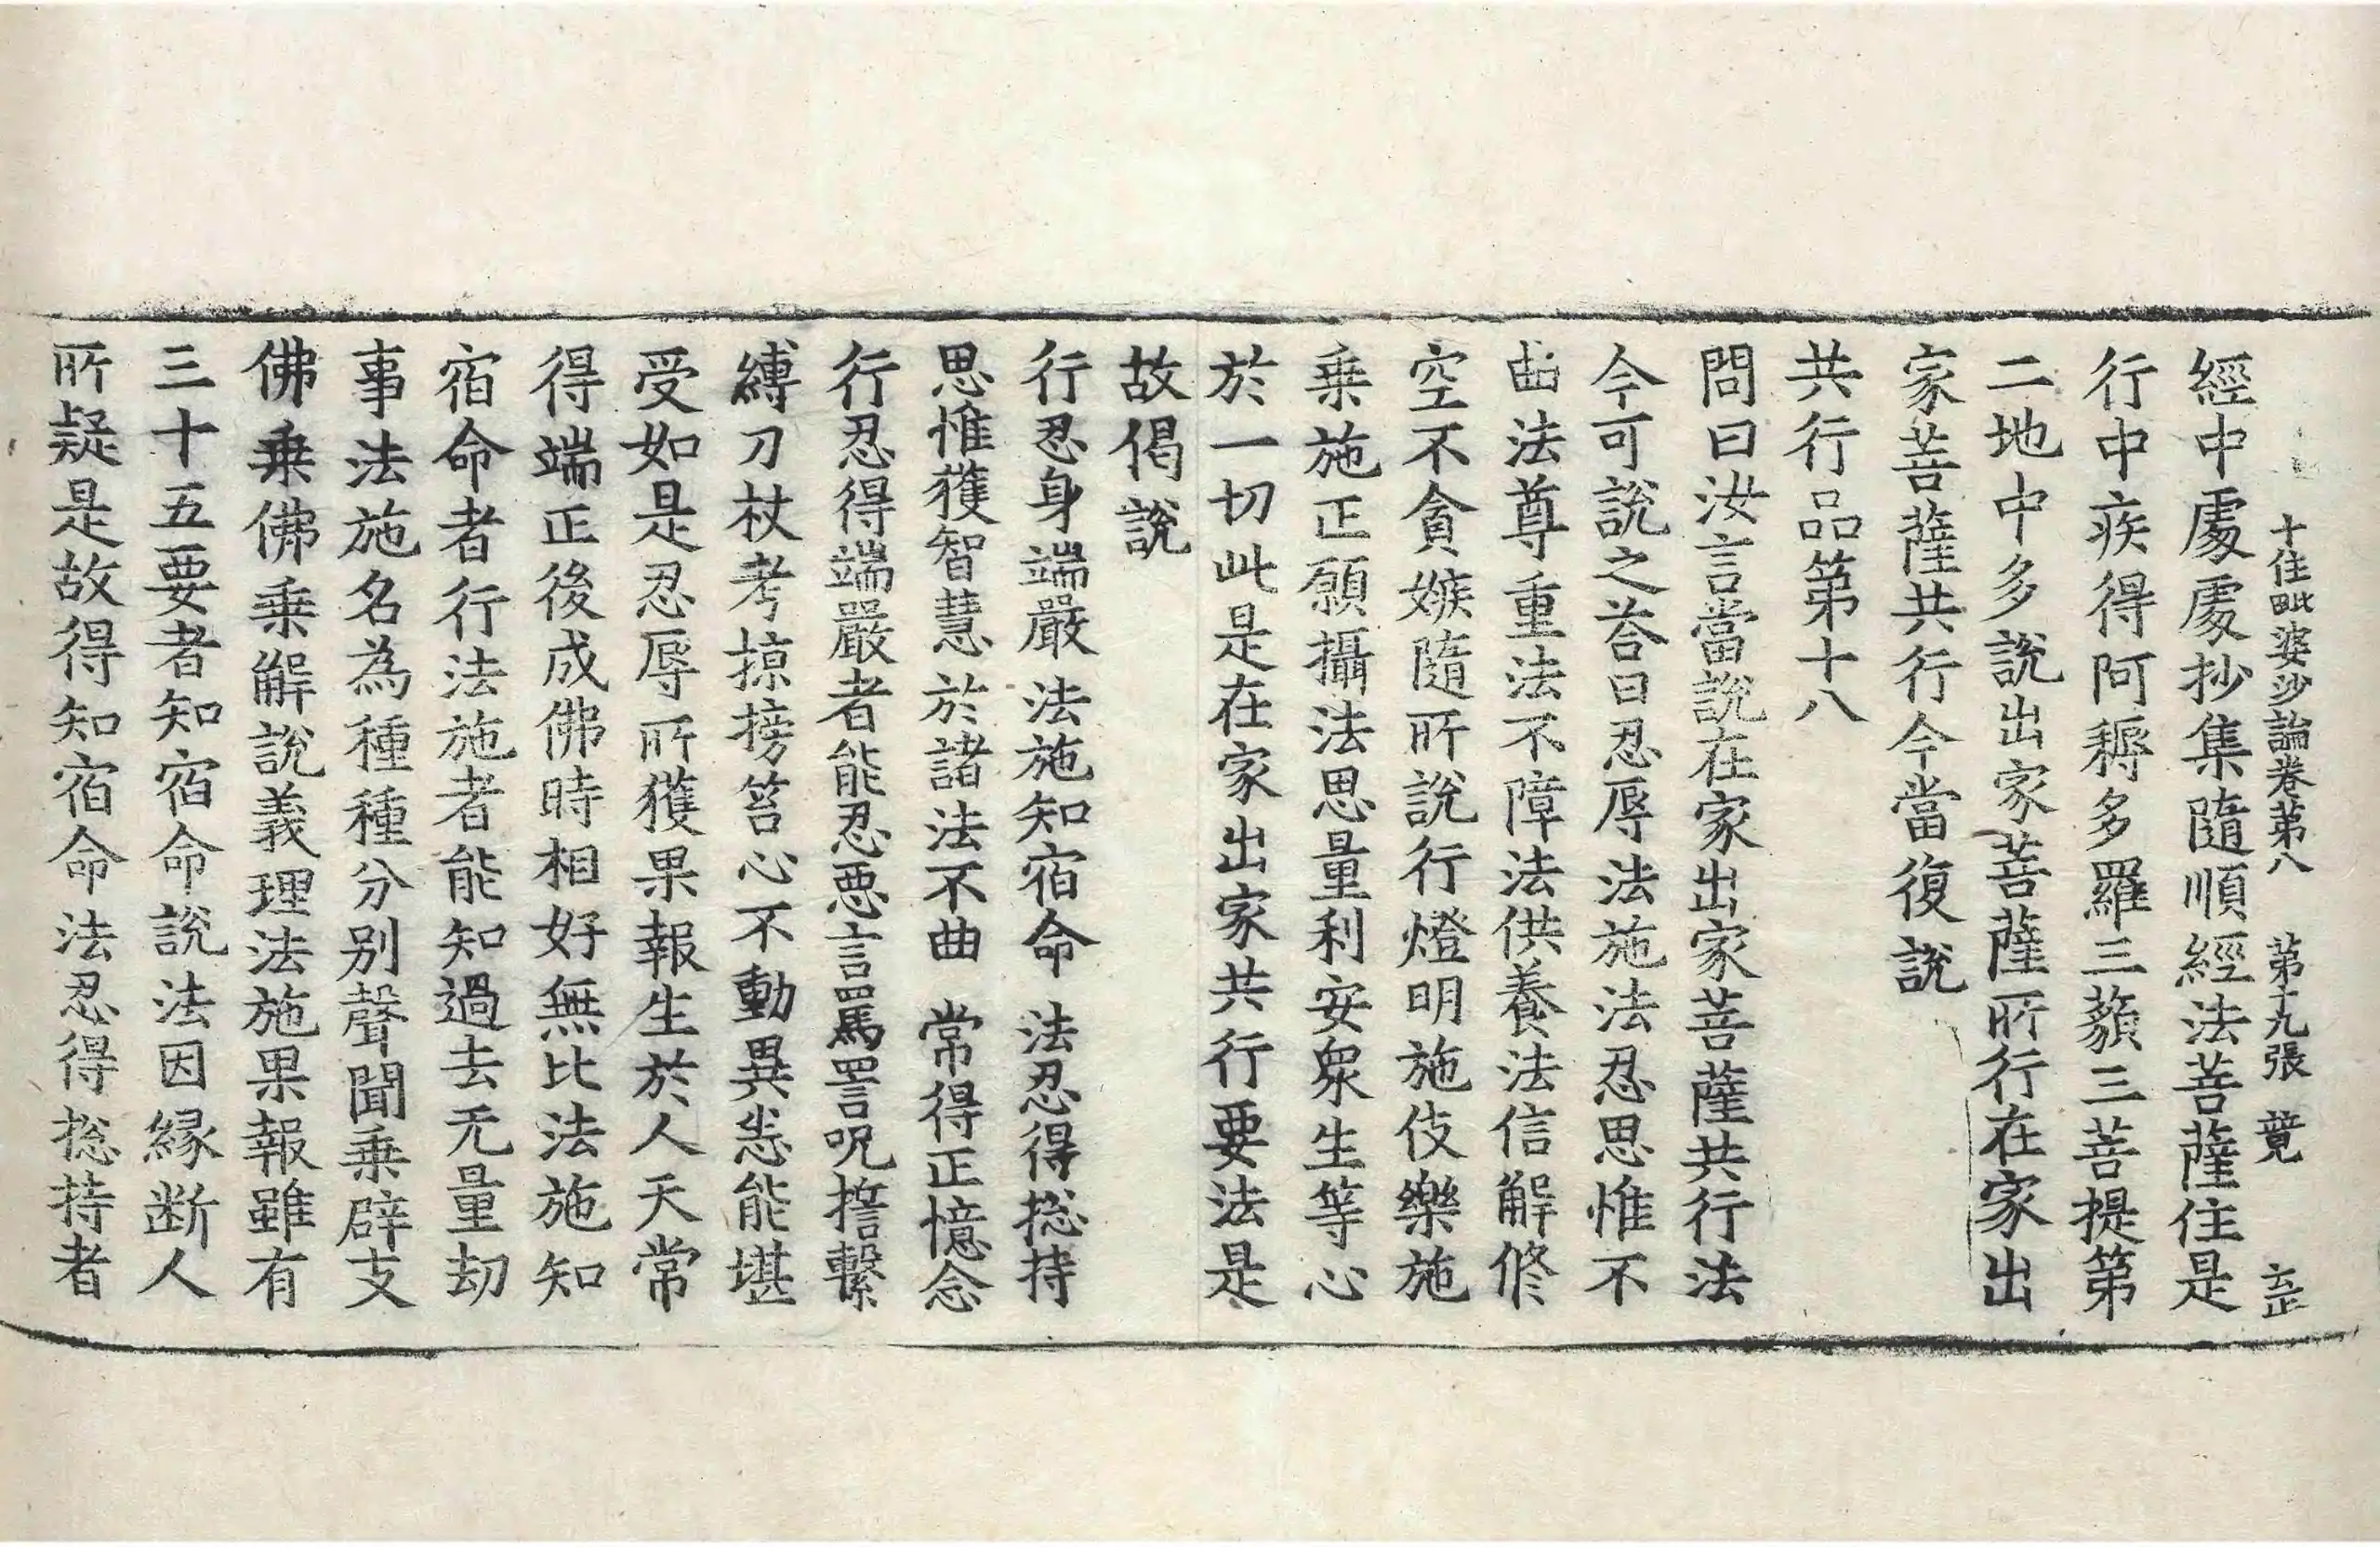 十住毗婆沙論卷第八　第十九張　竟
經中處處抄集隨順經法菩薩住是
行中疾得阿耨多羅三藐三菩提第
二地中多說出家菩薩所行在家出
家菩薩共行今當復說
共行品第十八
問曰汝言當說在家出家菩薩共行法
今可說之荅曰忍辱法施法忍思惟不
曲法尊重法不障法供養法信解修
空不貪嫉隨所說行燈明施伎樂施
乗施正願攝法思量利安衆生等心
於一切此是在家出家共行要法是
故偈說
行忍身端嚴　法施知宿命　法忍得揔持
思惟獲智慧　於諸法不曲　常得正憶念
行忍得端嚴者能忍惡言罵詈呪誓繫
縛刀杖考掠搒笞心不動異恙能堪
受如是忍辱所獲果報生於人天常
得端正後成佛時相好無比法施知
宿命者行法施者能知過去无量劫
事法施名為種種分別聲聞乗辟支
佛乗佛乗解說義理法施果報雖有
三十五要者知宿命說法因緣断人
所疑是故得知宿命法忍得揔持者